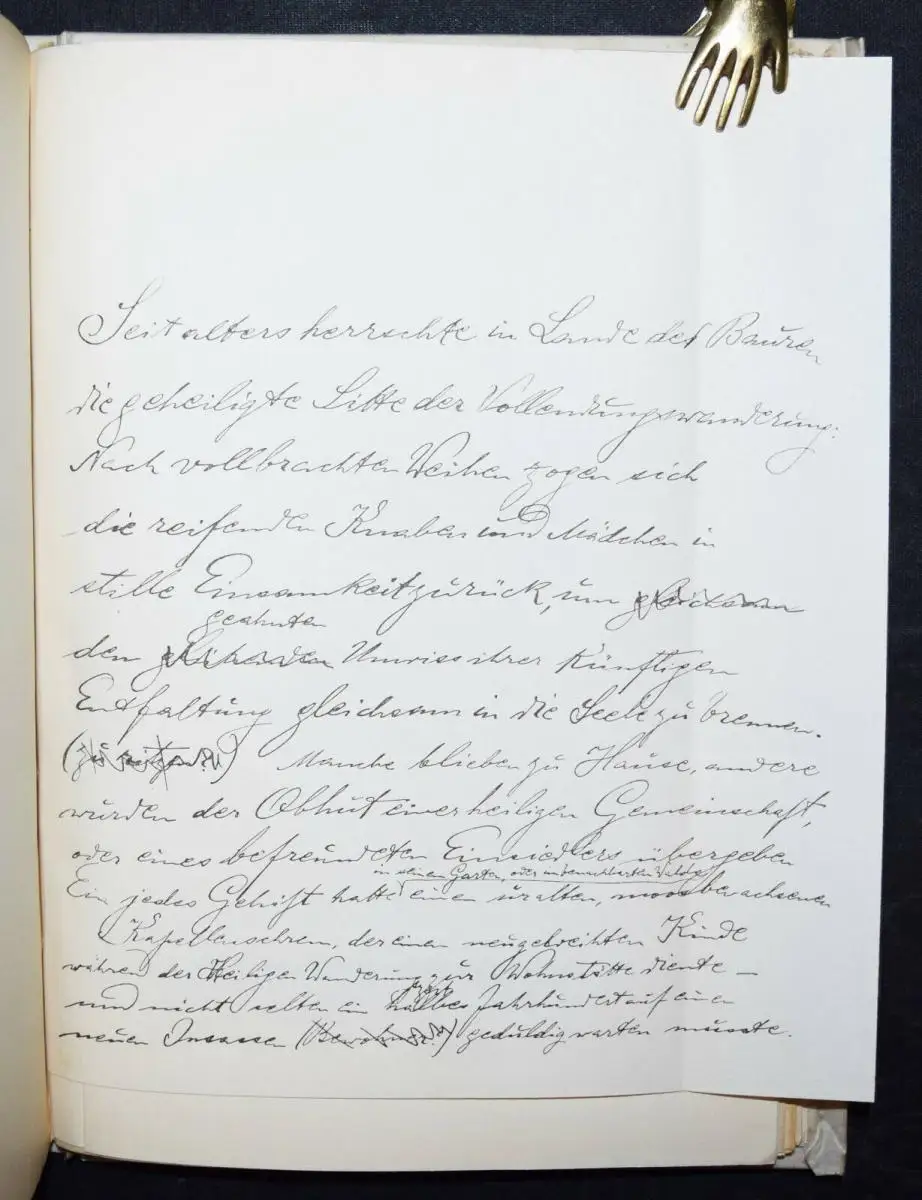 Seit alters herrschte in Lande der Bauren
die geheiligte Sitte der Vollendungswanderung:
Nach vollbrachten Weihen zogen sich
die reifenden Knaben und Mädchen in
stille Einsamkeit zurück, um gleichsam
geahnten
den Umriss ihrer künftigen
Entfaltung gleichsam in die Seele zu brennen.
Manche blieben zu Hause, andere
wurden der Obhut einer heiligen Gemeinschaft,
oder eines befreundeten Einsiedlers übergeben
in seinem Garten, oder im benachbarten Walde
Ein jedes Gehöft hatte einen uralten, moosbewachsenen
Kapellenschrein, der einen neugeweihten Kinde
während der Heiligen Wanderung zur Wohnstätte diente –
und nicht selten ein halbes Jahrhundert auf einen
neuen Insassen (Bewohner?) geduldig warten musste.